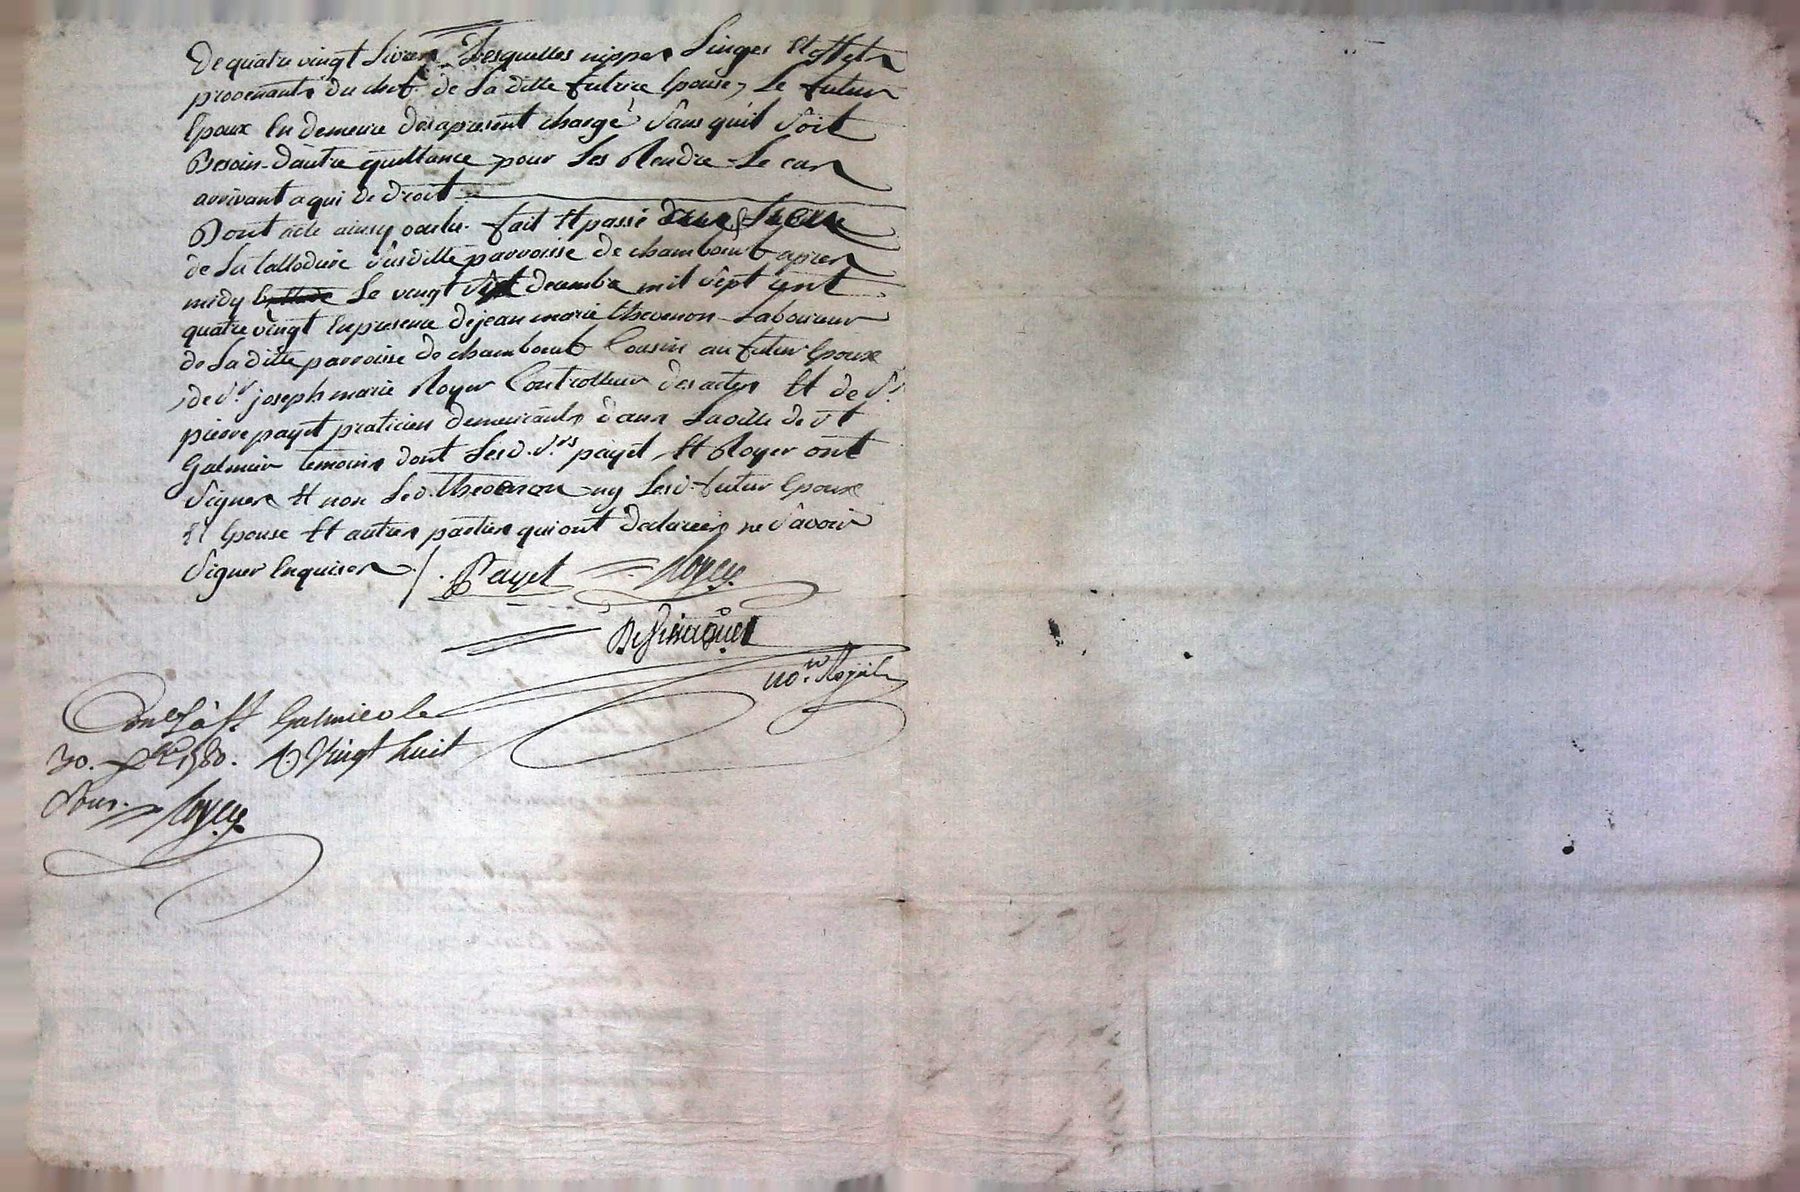 De quatre vingt Livres Lesquelles nippes Linges Et effets
provenants du chef de La ditte future Epouse, Le futur
Epoux En demeure desapresent chargé Sans quil Soit
Besoin d'autre quittance pour Les Rendre Le cas
arrivant a qui de droit
Dont acte ainsy voulu. fait Et passé
de La susditte parroisse de chambœuf apres
midy Le vingt Sept decembre mil Sept Cent
quatre vingt En presence de jean marie thevenon Laboureur
de La ditte parroisse de chambœuf Cousin au futur Epoux
de Sr. joseph marie Royer Controlleur des actes Et de Sr.
pierre payet praticien demeurants dans La ville de St
Galmier temoins dont Lesd. Srs payet Et Royer ont
Signes Et non Led. thevenon ny Lesd. futur Epoux
Et Epouse Et autres parties qui ont declarées ne Savoir
Signer Enquises ./.
Payet Royer
no.re Royal
Conlé à St Galmier le
30. Xbre 1780. R. Vingt huit
Sous. Royer
Pascal